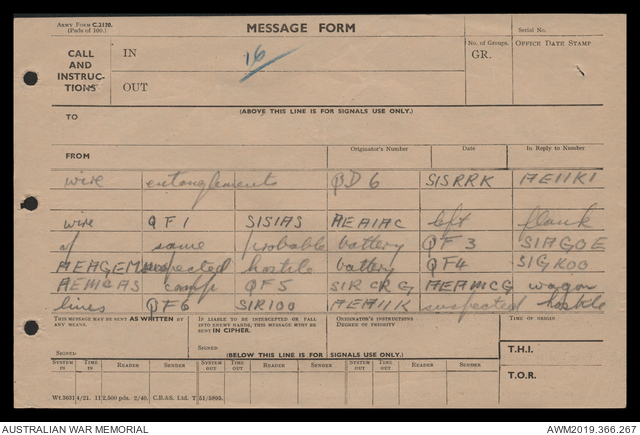 ARMY FORM C.2130.
(Pads of 100.)
MESSAGE FORM
Serial No.
CALL AND INSTRUC- TIONS
IN
16
No. of Groups.
GR.
OFFICE DATE STAMP
OUT
(ABOVE THIS LINE IS FOR SIGNALS USE ONLY.)
TO
FROM
Originator's Number
Date
In Reply to Number
wire entanglements QD6 SISRRK AEIIKI
wire QF1 SISIAS AEAIAC left flank
of same probable battery QF3 SIAGOE
AEAGEM suspected hostile battery QF4 SIGKOO
AEMCAS camp QF5 SIRCRG AEAMCG wagon
lines QF6 SIRIOO AEAIIK suspected hostile
THIS MESSAGE MAY BE SENT AS WRITTEN BY ANY MEANS.
IF LIABLE TO BE INTERCEPTED OR FALL INTO ENEMY HANDS, THIS MESSAGE MUST BE SENT IN CIPHER.
ORIGINATOR'S INSTRUCTIONS
DEGREE OF PRIORITY
TIME OF ORIGIN
SIGNED
SIGNED
(BELOW THIS LINE IS FOR SIGNALS USE ONLY.)
T.H.I.
SYSTEM IN
TIME IN
READER
SENDER
SYSTEM OUT
TIME OUT
READER
SENDER
SYSTEM OUT
TIME OUT
READER
SENDER
T.O.R.
Wt.36314/21. 112,500 pds. 2/40. C.B.AS. Ltd. T51/5805.
AUSTRALIAN WAR MEMORIAL
AWM2019.366.267